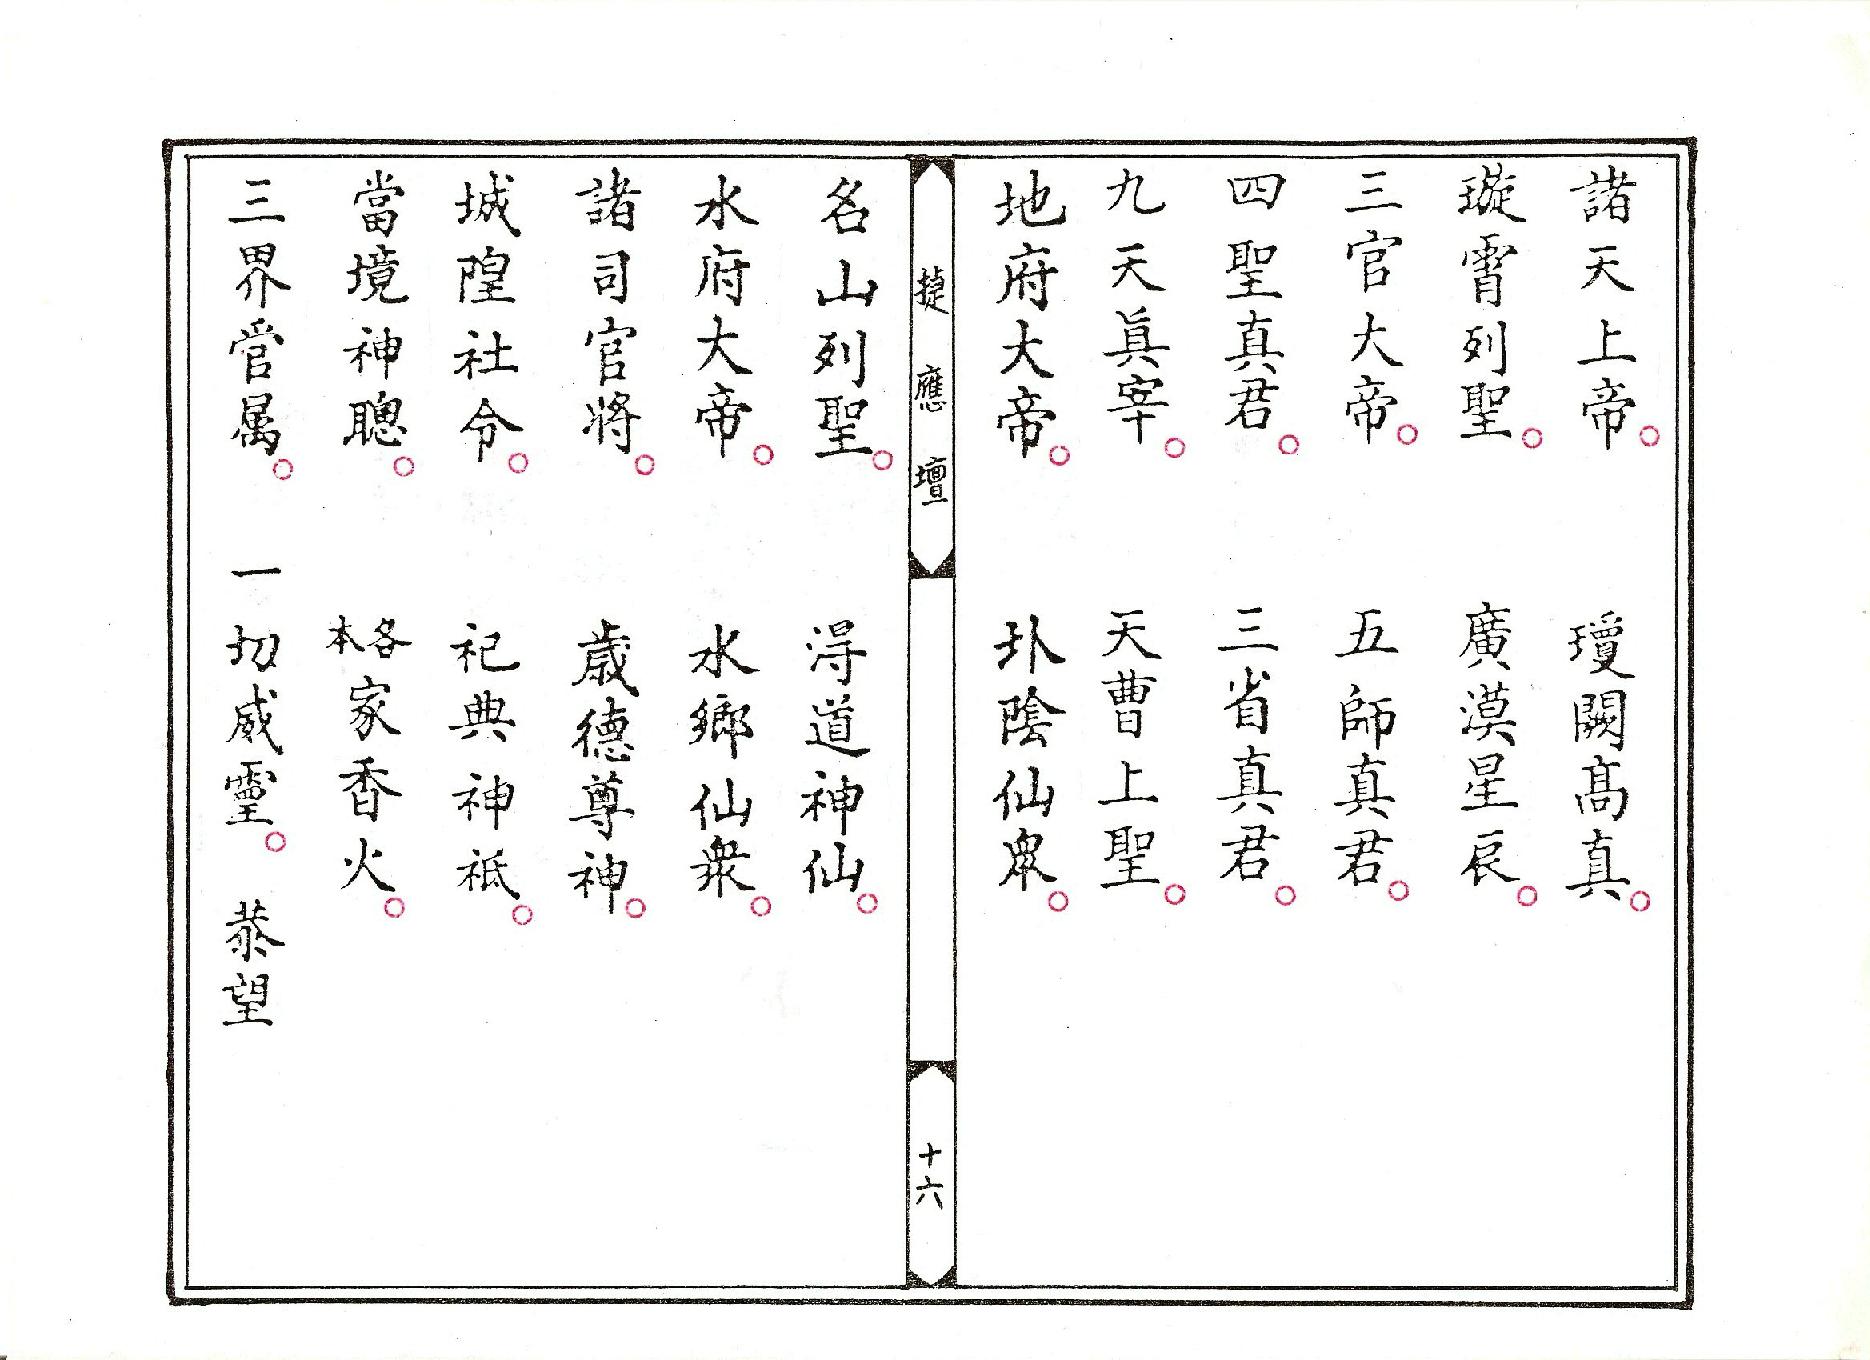 諸天上帝。瓊闕髙真。
璇霄列聖。廣漠星辰。
三官大帝。五師真君。
四聖真君。三省真君。
九天眞宰。天曹上聖。
地府大帝。圤陰仙眾。
捷應壇
十六
名山列聖。淂道神仙。
水府大帝。水鄉仙衆。
諸司官將。歲德尊神。
城隍社令。祀典神祗。
當境神聰。各本家香火。
三界官属。一切威靈。恭望